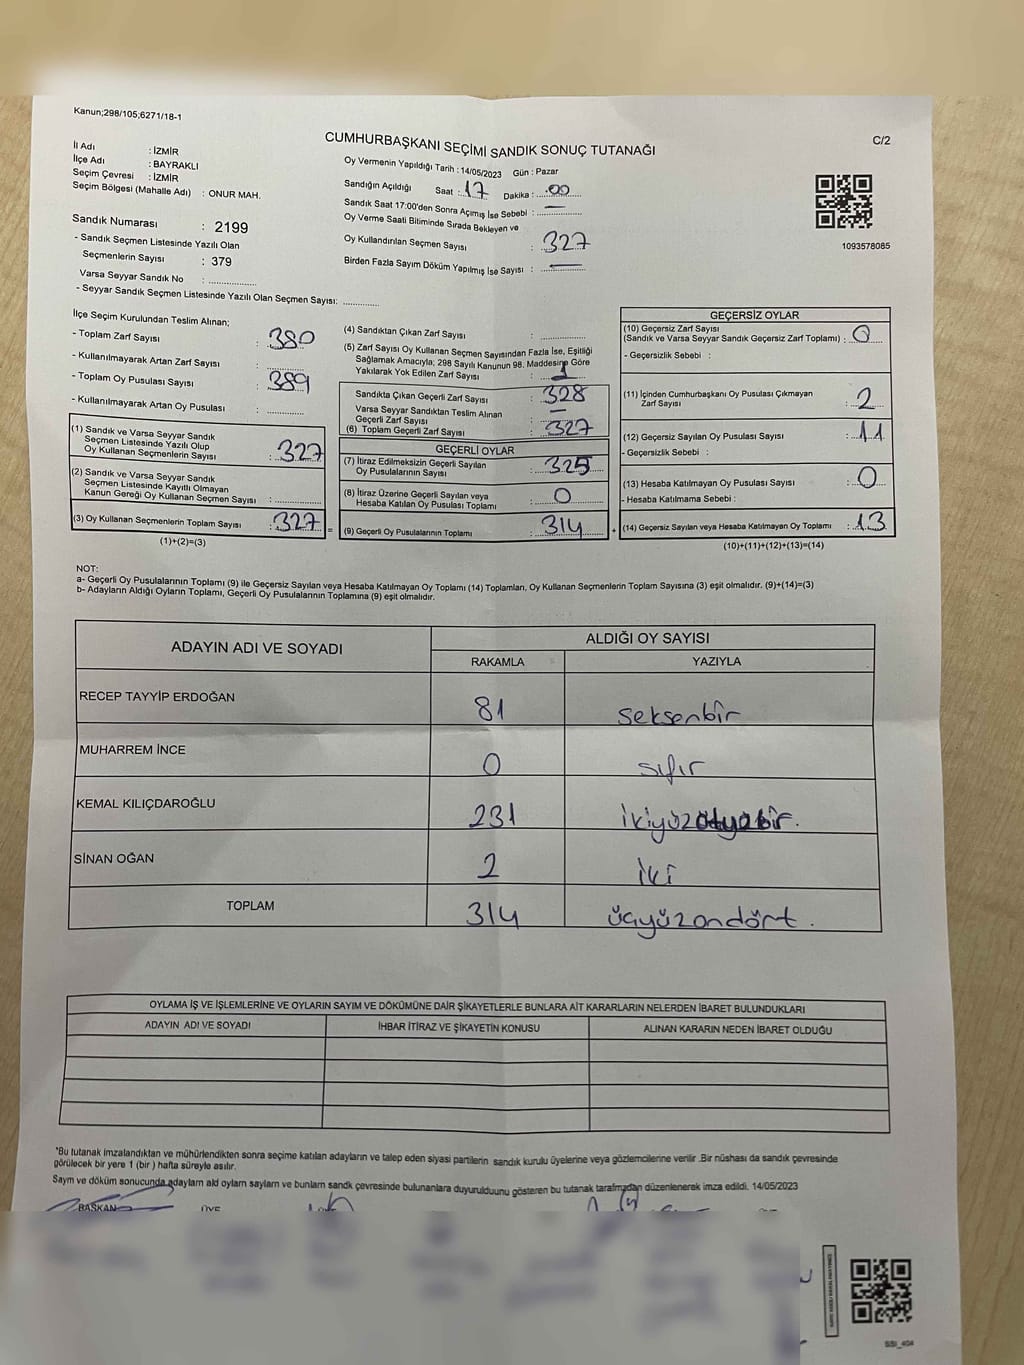 Kanun;298/105;6271/18-1
C/2
CUMHURBAŞKANI SEÇİMİ SANDIK SONUÇ TUTANAĞI
İl Adı : İZMİR
İlçe Adı : BAYRAKLI
Seçim Çevresi : İZMİR
Seçim Bölgesi (Mahalle Adı) : ONUR MAH.
Oy Vermenin Yapıldığı Tarih : 14/05/2023 Gün : Pazar
Sandığın Açıldığı Saat : 17 Dakika : 00
Sandık Saat 17:00'den Sonra Açımış İse Sebebi : —
Oy Verme Saati Bitiminde Sırada Bekleyen ve
Oy Kullandırılan Seçmen Sayısı : 327
Birden Fazla Sayım Döküm Yapılmış İse Sayısı : —
1093578085
Sandık Numarası : 2199
- Sandık Seçmen Listesinde Yazılı Olan
Seçmenlerin Sayısı : 379
Varsa Seyyar Sandık No :
- Seyyar Sandık Seçmen Listesinde Yazılı Olan Seçmen Sayısı:
İlçe Seçim Kurulundan Teslim Alınan;
- Toplam Zarf Sayısı : 380
- Kullanılmayarak Artan Zarf Sayısı :
- Toplam Oy Pusulası Sayısı : 389
- Kullanılmayarak Artan Oy Pusulası :
(1) Sandık ve Varsa Seyyar Sandık
Seçmen Listesinde Yazılı Olup
Oy Kullanan Seçmenlerin Sayısı : 327
(2) Sandık ve Varsa Seyyar Sandık
Seçmen Listesinde Kayıtlı Olmayan
Kanun Gereği Oy Kullanan Seçmen Sayısı :
(3) Oy Kullanan Seçmenlerin Toplam Sayısı : 327 =
(1)+(2)=(3)
(4) Sandıktan Çıkan Zarf Sayısı :
(5) Zarf Sayısı Oy Kullanan Seçmen Sayısından Fazla İse, Eşitliği
Sağlamak Amacıyla; 298 Sayılı Kanunun 98. Maddesine Göre
Yakılarak Yok Edilen Zarf Sayısı : 1
Sandıkta Çıkan Geçerli Zarf Sayısı : 328
Varsa Seyyar Sandıktan Teslim Alınan
Geçerli Zarf Sayısı : —
(6) Toplam Geçerli Zarf Sayısı : 327
GEÇERLİ OYLAR
(7) İtiraz Edilmeksizin Geçerli Sayılan
Oy Pusulalarının Sayısı : 325
(8) İtiraz Üzerine Geçerli Sayılan veya
Hesaba Katılan Oy Pusulası Toplamı : 0
(9) Geçerli Oy Pusulalarının Toplamı : 314 +
GEÇERSİZ OYLAR
(10) Geçersiz Zarf Sayısı
(Sandık ve Varsa Seyyar Sandık Geçersiz Zarf Toplamı) : 0
- Geçersizlik Sebebi :
(11) İçinden Cumhurbaşkanı Oy Pusulası Çıkmayan
Zarf Sayısı : 2
(12) Geçersiz Sayılan Oy Pusulası Sayısı : 11
- Geçersizlik Sebebi :
(13) Hesaba Katılmayan Oy Pusulası Sayısı : 0
- Hesaba Katılmama Sebebi :
(14) Geçersiz Sayılan veya Hesaba Katılmayan Oy Toplamı : 13
(10)+(11)+(12)+(13)=(14)
NOT:
a- Geçerli Oy Pusulalarının Toplamı (9) ile Geçersiz Sayılan veya Hesaba Katılmayan Oy Toplamı (14) Toplamları, Oy Kullanan Seçmenlerin Toplam Sayısına (3) eşit olmalıdır. (9)+(14)=(3)
b- Adayların Aldığı Oyların Toplamı, Geçerli Oy Pusulalarının Toplamına (9) eşit olmalıdır.
ADAYIN ADI VE SOYADI
ALDIĞI OY SAYISI
RAKAMLA YAZIYLA
RECEP TAYYİP ERDOĞAN 81 seksenbir
MUHARREM İNCE 0 sıfır
KEMAL KILIÇDAROĞLU 231
SİNAN OĞAN 2 iki
TOPLAM 314 üçyüzondört.
OYLAMA İŞ VE İŞLEMLERİNE VE OYLARIN SAYIM VE DÖKÜMÜNE DAİR ŞİKAYETLERLE BUNLARA AİT KARARLARIN NELERDEN İBARET BULUNDUKLARI
ADAYIN ADI VE SOYADI İHBAR İTİRAZ VE ŞİKAYETİN KONUSU ALINAN KARARIN NEDEN İBARET OLDUĞU
*Bu tutanak imzalandıktan ve mühürlendikten sonra seçime katılan adayların ve talep eden siyasi partilerin sandık kurulu üyelerine veya gözlemcilerine verilir .Bir nüshası da sandık çevresinde
görülecek bir yere 1 (bir ) hafta süreyle asılır.
Saym ve döküm sonucunda adaylarn ald oylarn saylarn ve bunlarn sandk çevresinde bulunanlara duyurulduunu gösteren bu tutanak tarafmzdan düzenlenerek imza edildi. 14/05/2023
BAŞKAN ÜYE
SSI_404